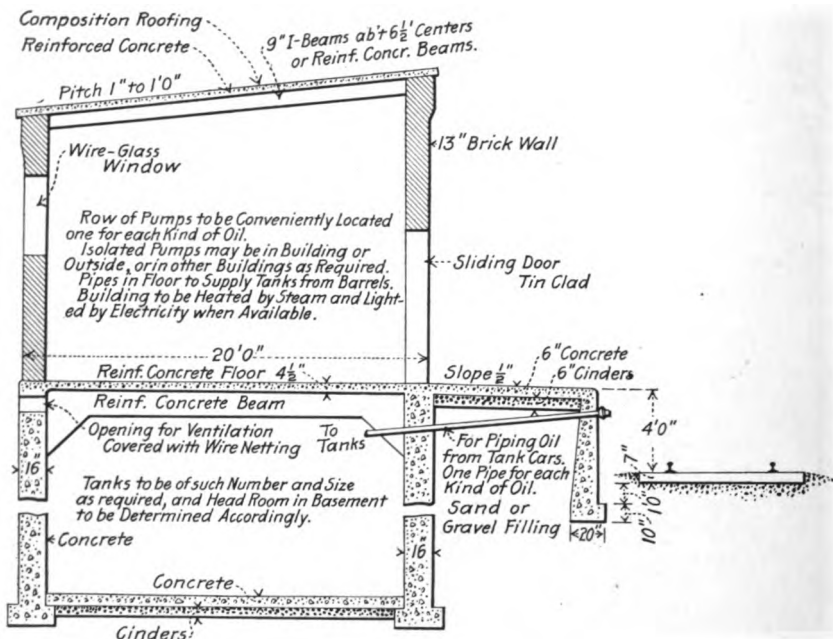 Composition Roofing
Reinforced Concrete
9" I-Beams ab't 6½' Centers
or Reinf. Concr. Beams.
Pitch 1" to 1'0"
Wire-Glass
Window
13" Brick Wall
Row of Pumps to be Conveniently Located
one for each Kind of Oil.
Isolated Pumps may be in Building or
Outside, or in other Buildings as Required.
Pipes in Floor to Supply Tanks from Barrels.
Building to be Heated by Steam and Light-
ed by Electricity when Available.
Sliding Door
Tin Clad
20'0"
Reinf. Concrete Floor 4½"
Slope ½"
6" Concrete
6" Cinders
Reinf. Concrete Beam
Opening for Ventilation
Covered with Wire Netting
To
Tanks
For Piping Oil
from Tank Cars.
One Pipe for each
Kind of Oil.
Sand or
Gravel Filling
4'0"
7"
10"
10"
20"
16"
Tanks to be of such Number and Size
as required, and Head Room in Basement
to be Determined Accordingly.
Concrete
16"
Concrete
Cinders